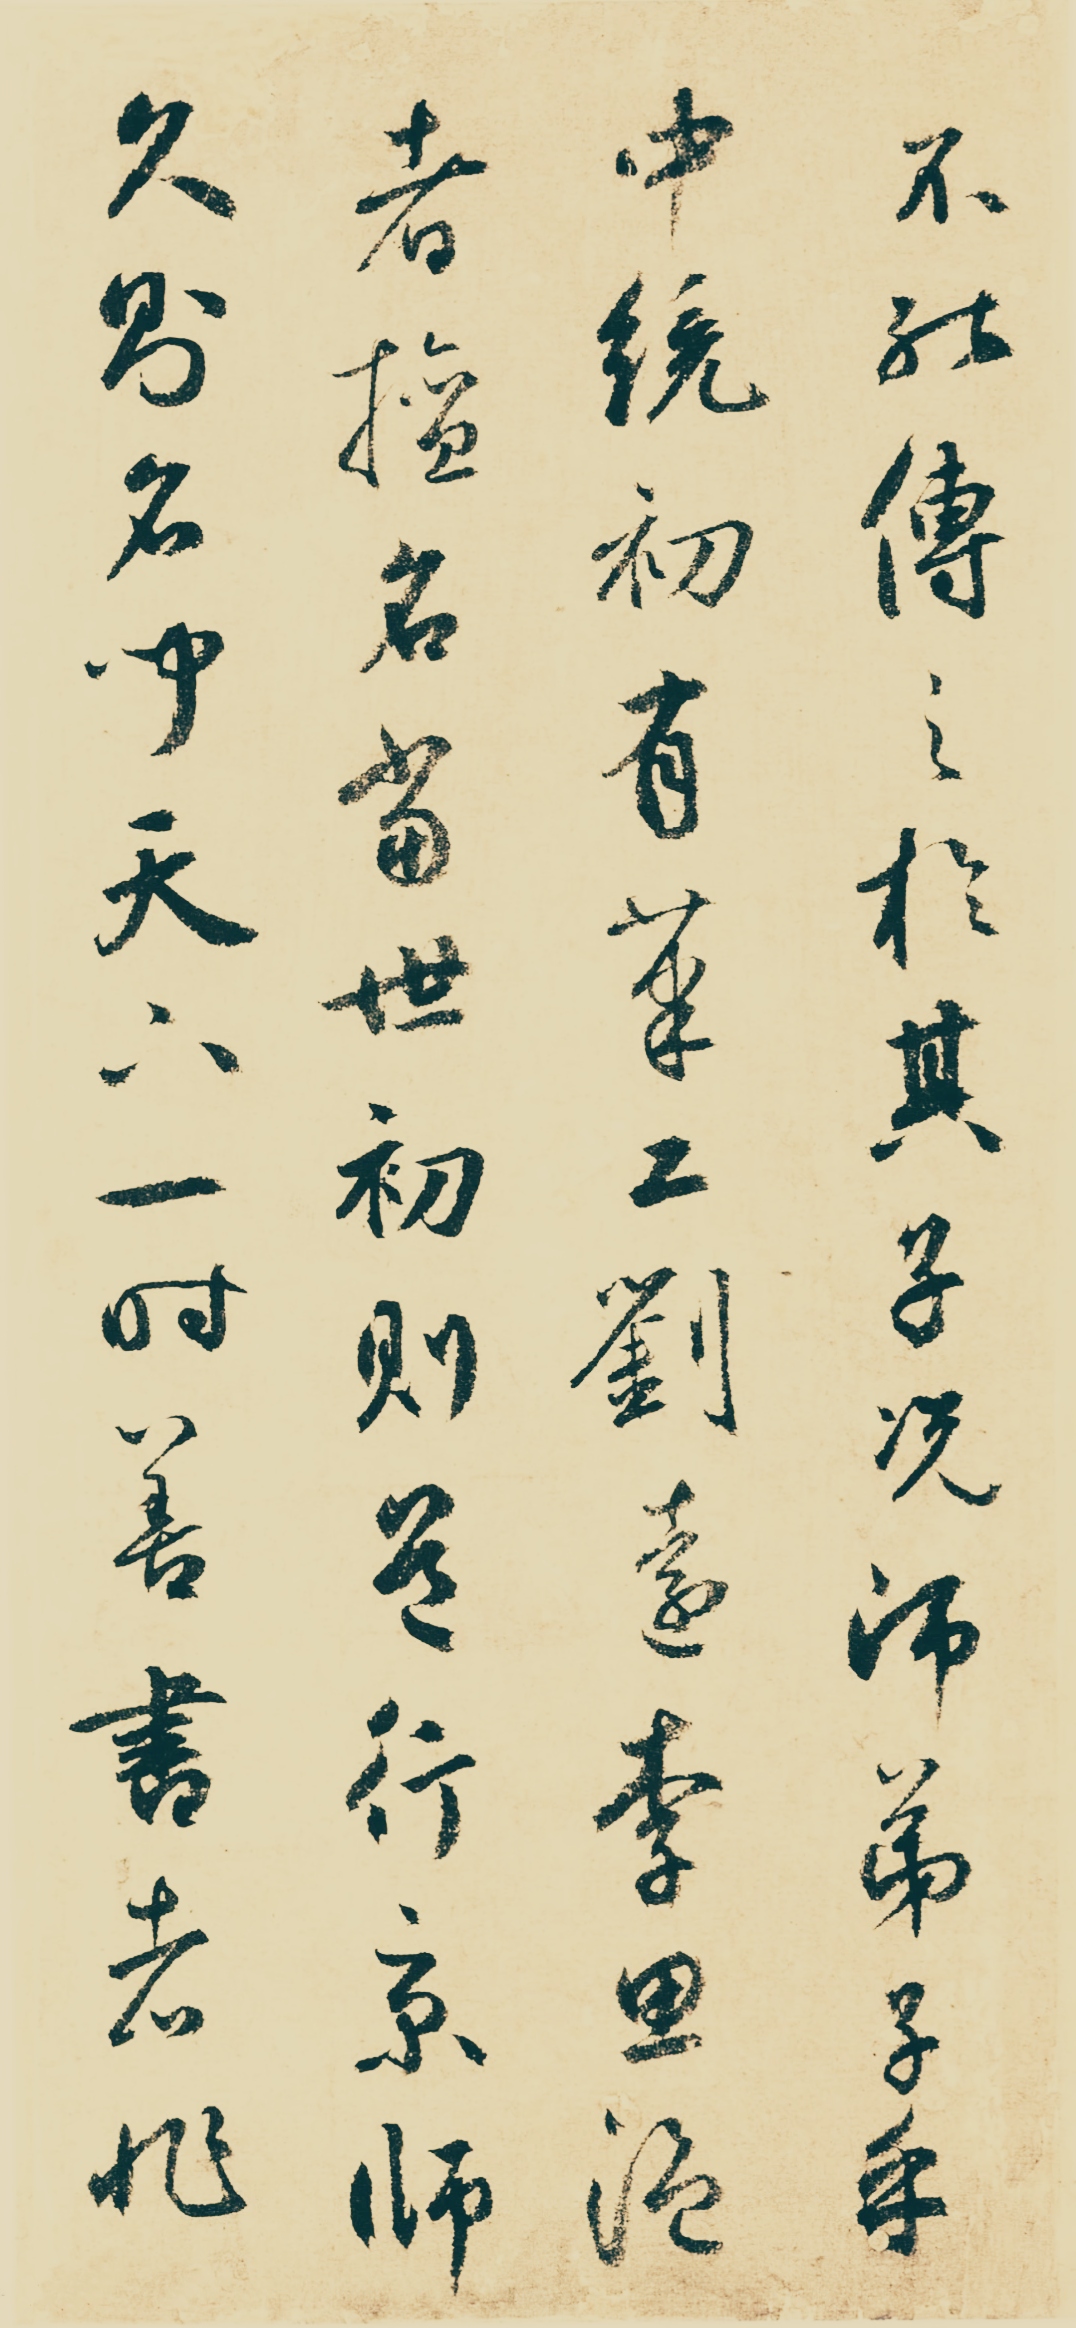 不能傳之於其子況師弟子乎
中統初有筆工劉遠李思温
者擅名當世初則道行京師
久則名聞天下一時善書者非